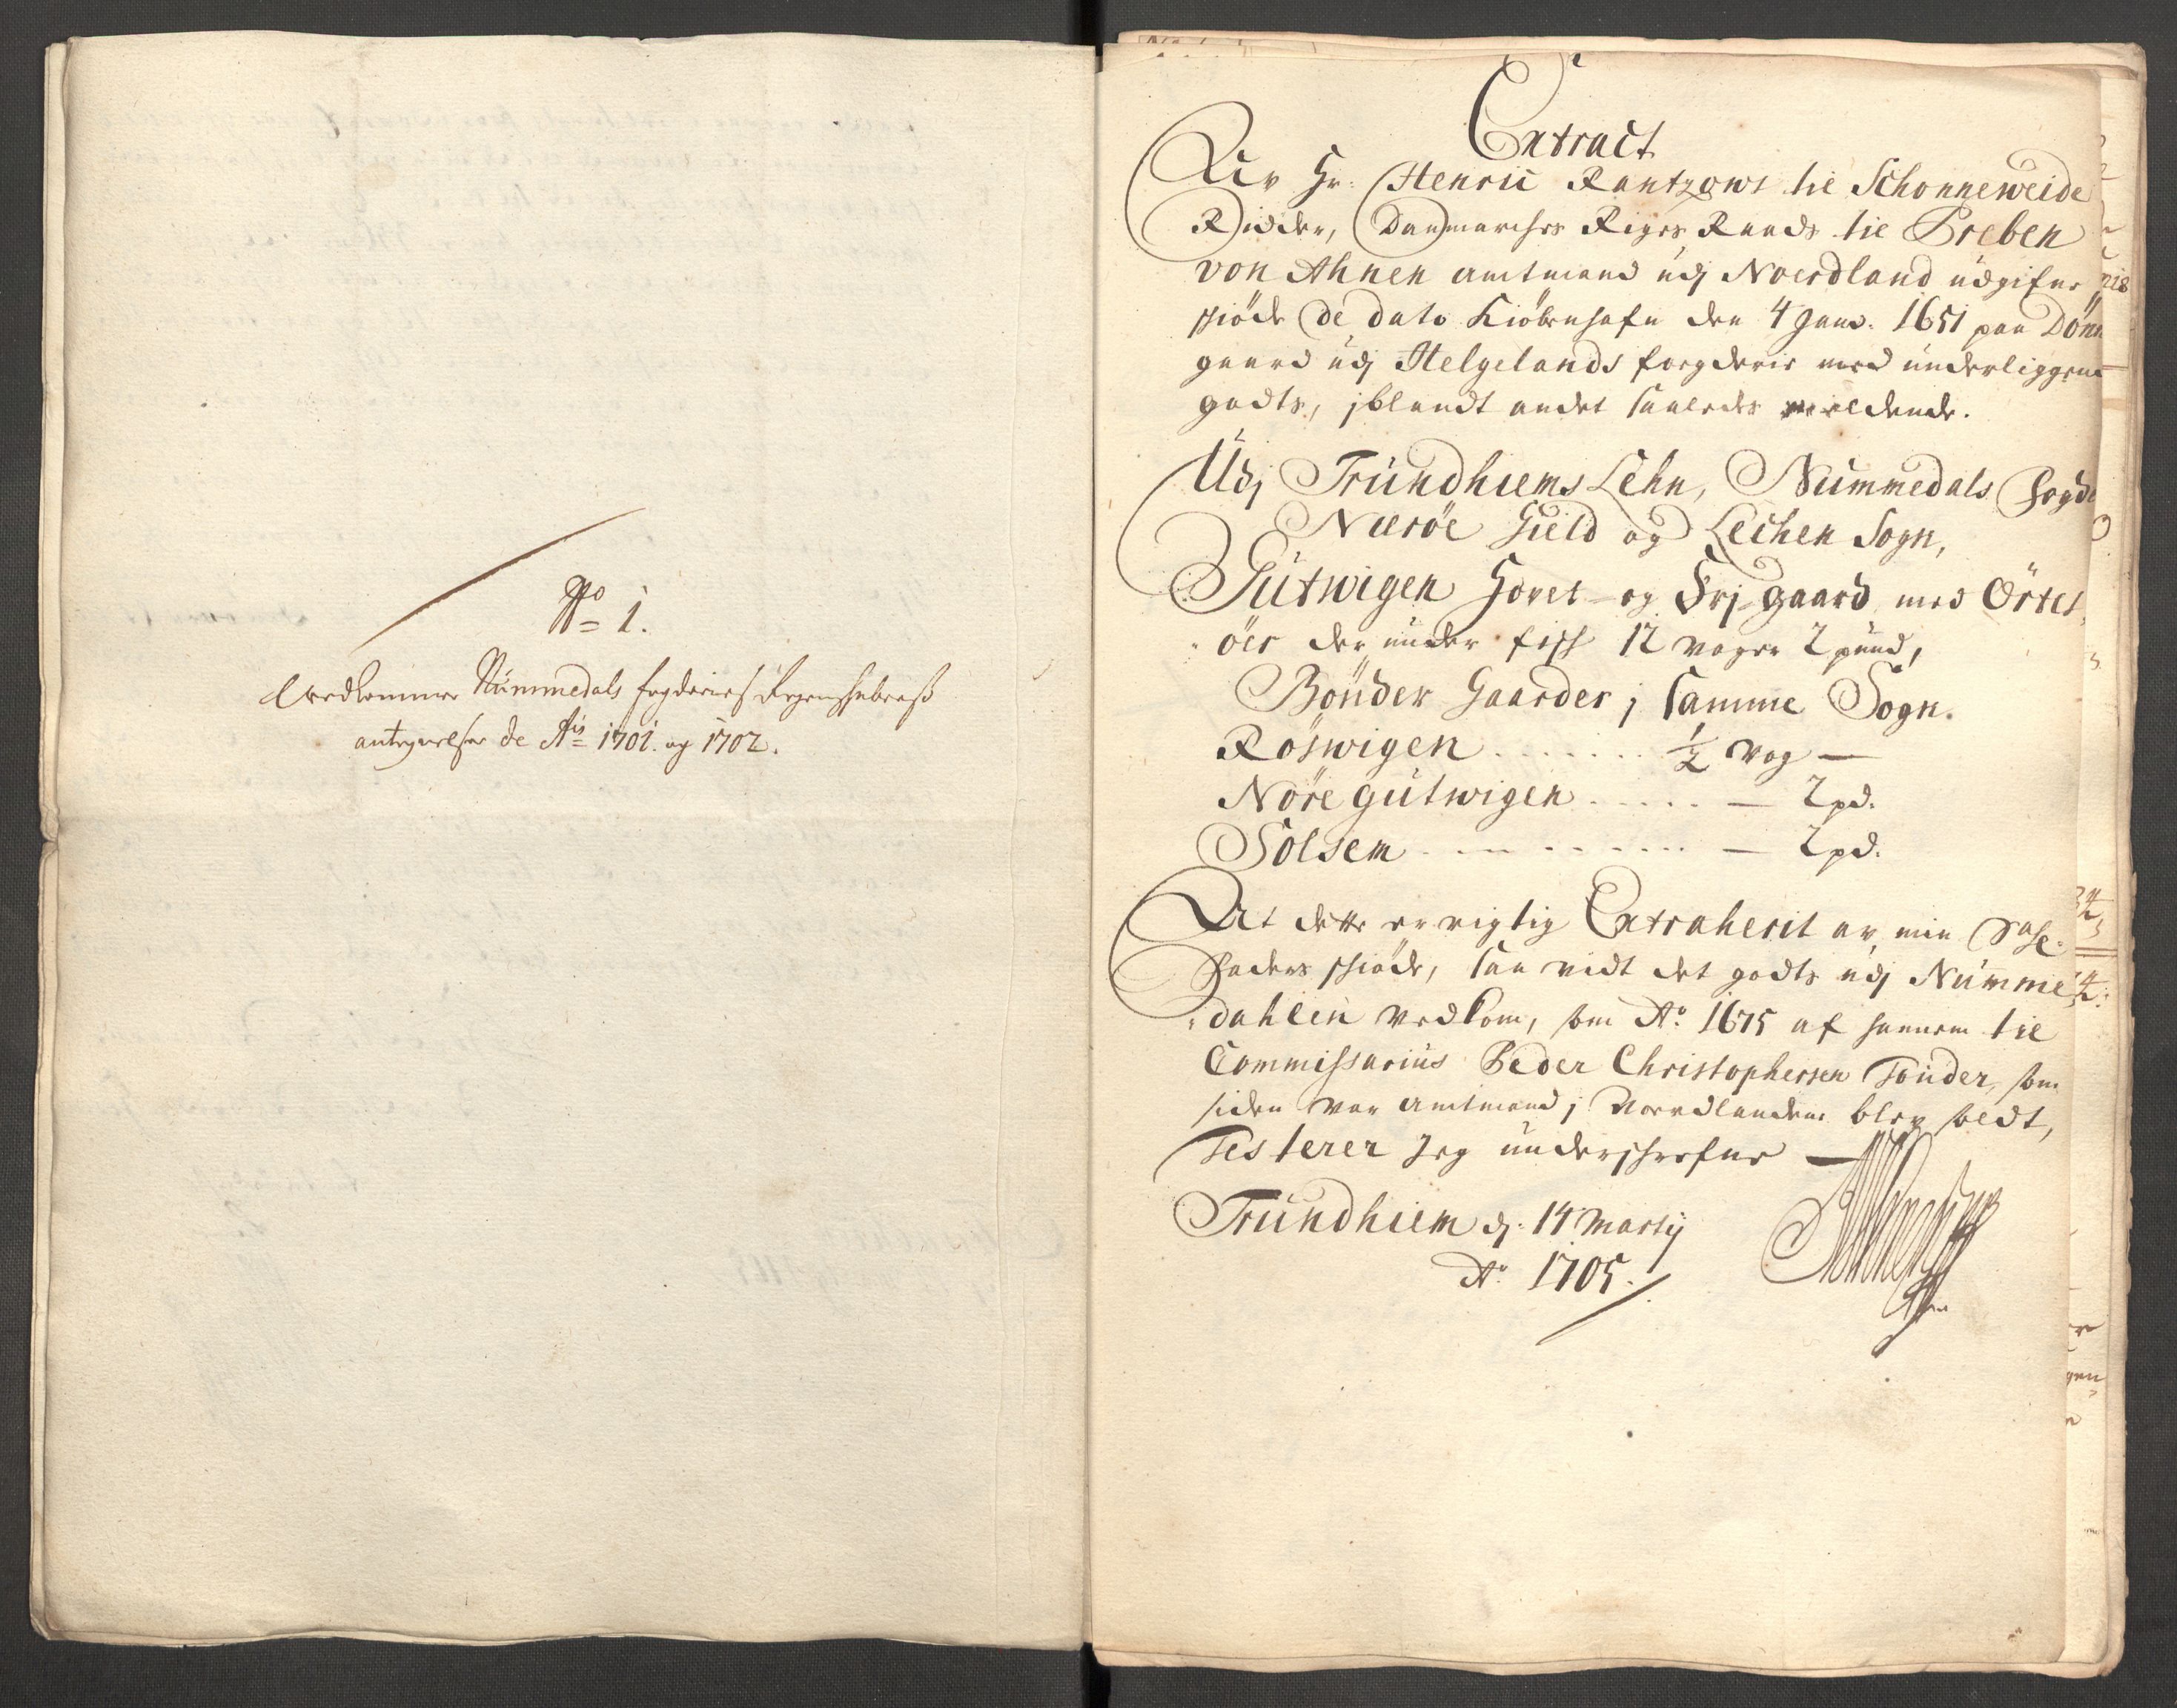 No 1.
Vedkommer Nummedals fogderies Regenskabers
antegnelser de Ais 1701. og 1702.
Extract
Av Hr: Henric Rantzows til Schonneweide
Ridder, Danmarches Riges Raads til Preben
von Ahnen amtmand udj Noerdland udgifne
schiöde de dato Kiöbenhafn den 4 Janv. 1651 paa Dönn
gaard udj Helgelands fogderie med underliggende
godts, jblandt andet saaledes meldende.
Udj Trundhiems Lehn, Nummedals fogde
Næröe Gield og Lechen Sogn,
Gutwigen Hovet- og Frj-gaard med Örtes
öer der under fisch 12 voger 2 pund,
Bönder Gaarder j samme Sogn.
Röswigen ....... ½ vog —
Nöre gutwigen ..... — 2 pd.
Solsem ........ — 2 pd.
At dette er rigtig Extraherit av min Sahl:
Faders schiöde, saa vidt det godts udj Numme
dahlen vedkom, som Ao. 1675 af hannem til
Commissarius Peder Christophersen Tönder, som
siden var amtmand j Noerdlanden blev soldt,
Testerer Jeg underschrefne —
Trundhiem d: 14 Martij
Ao. 1705.